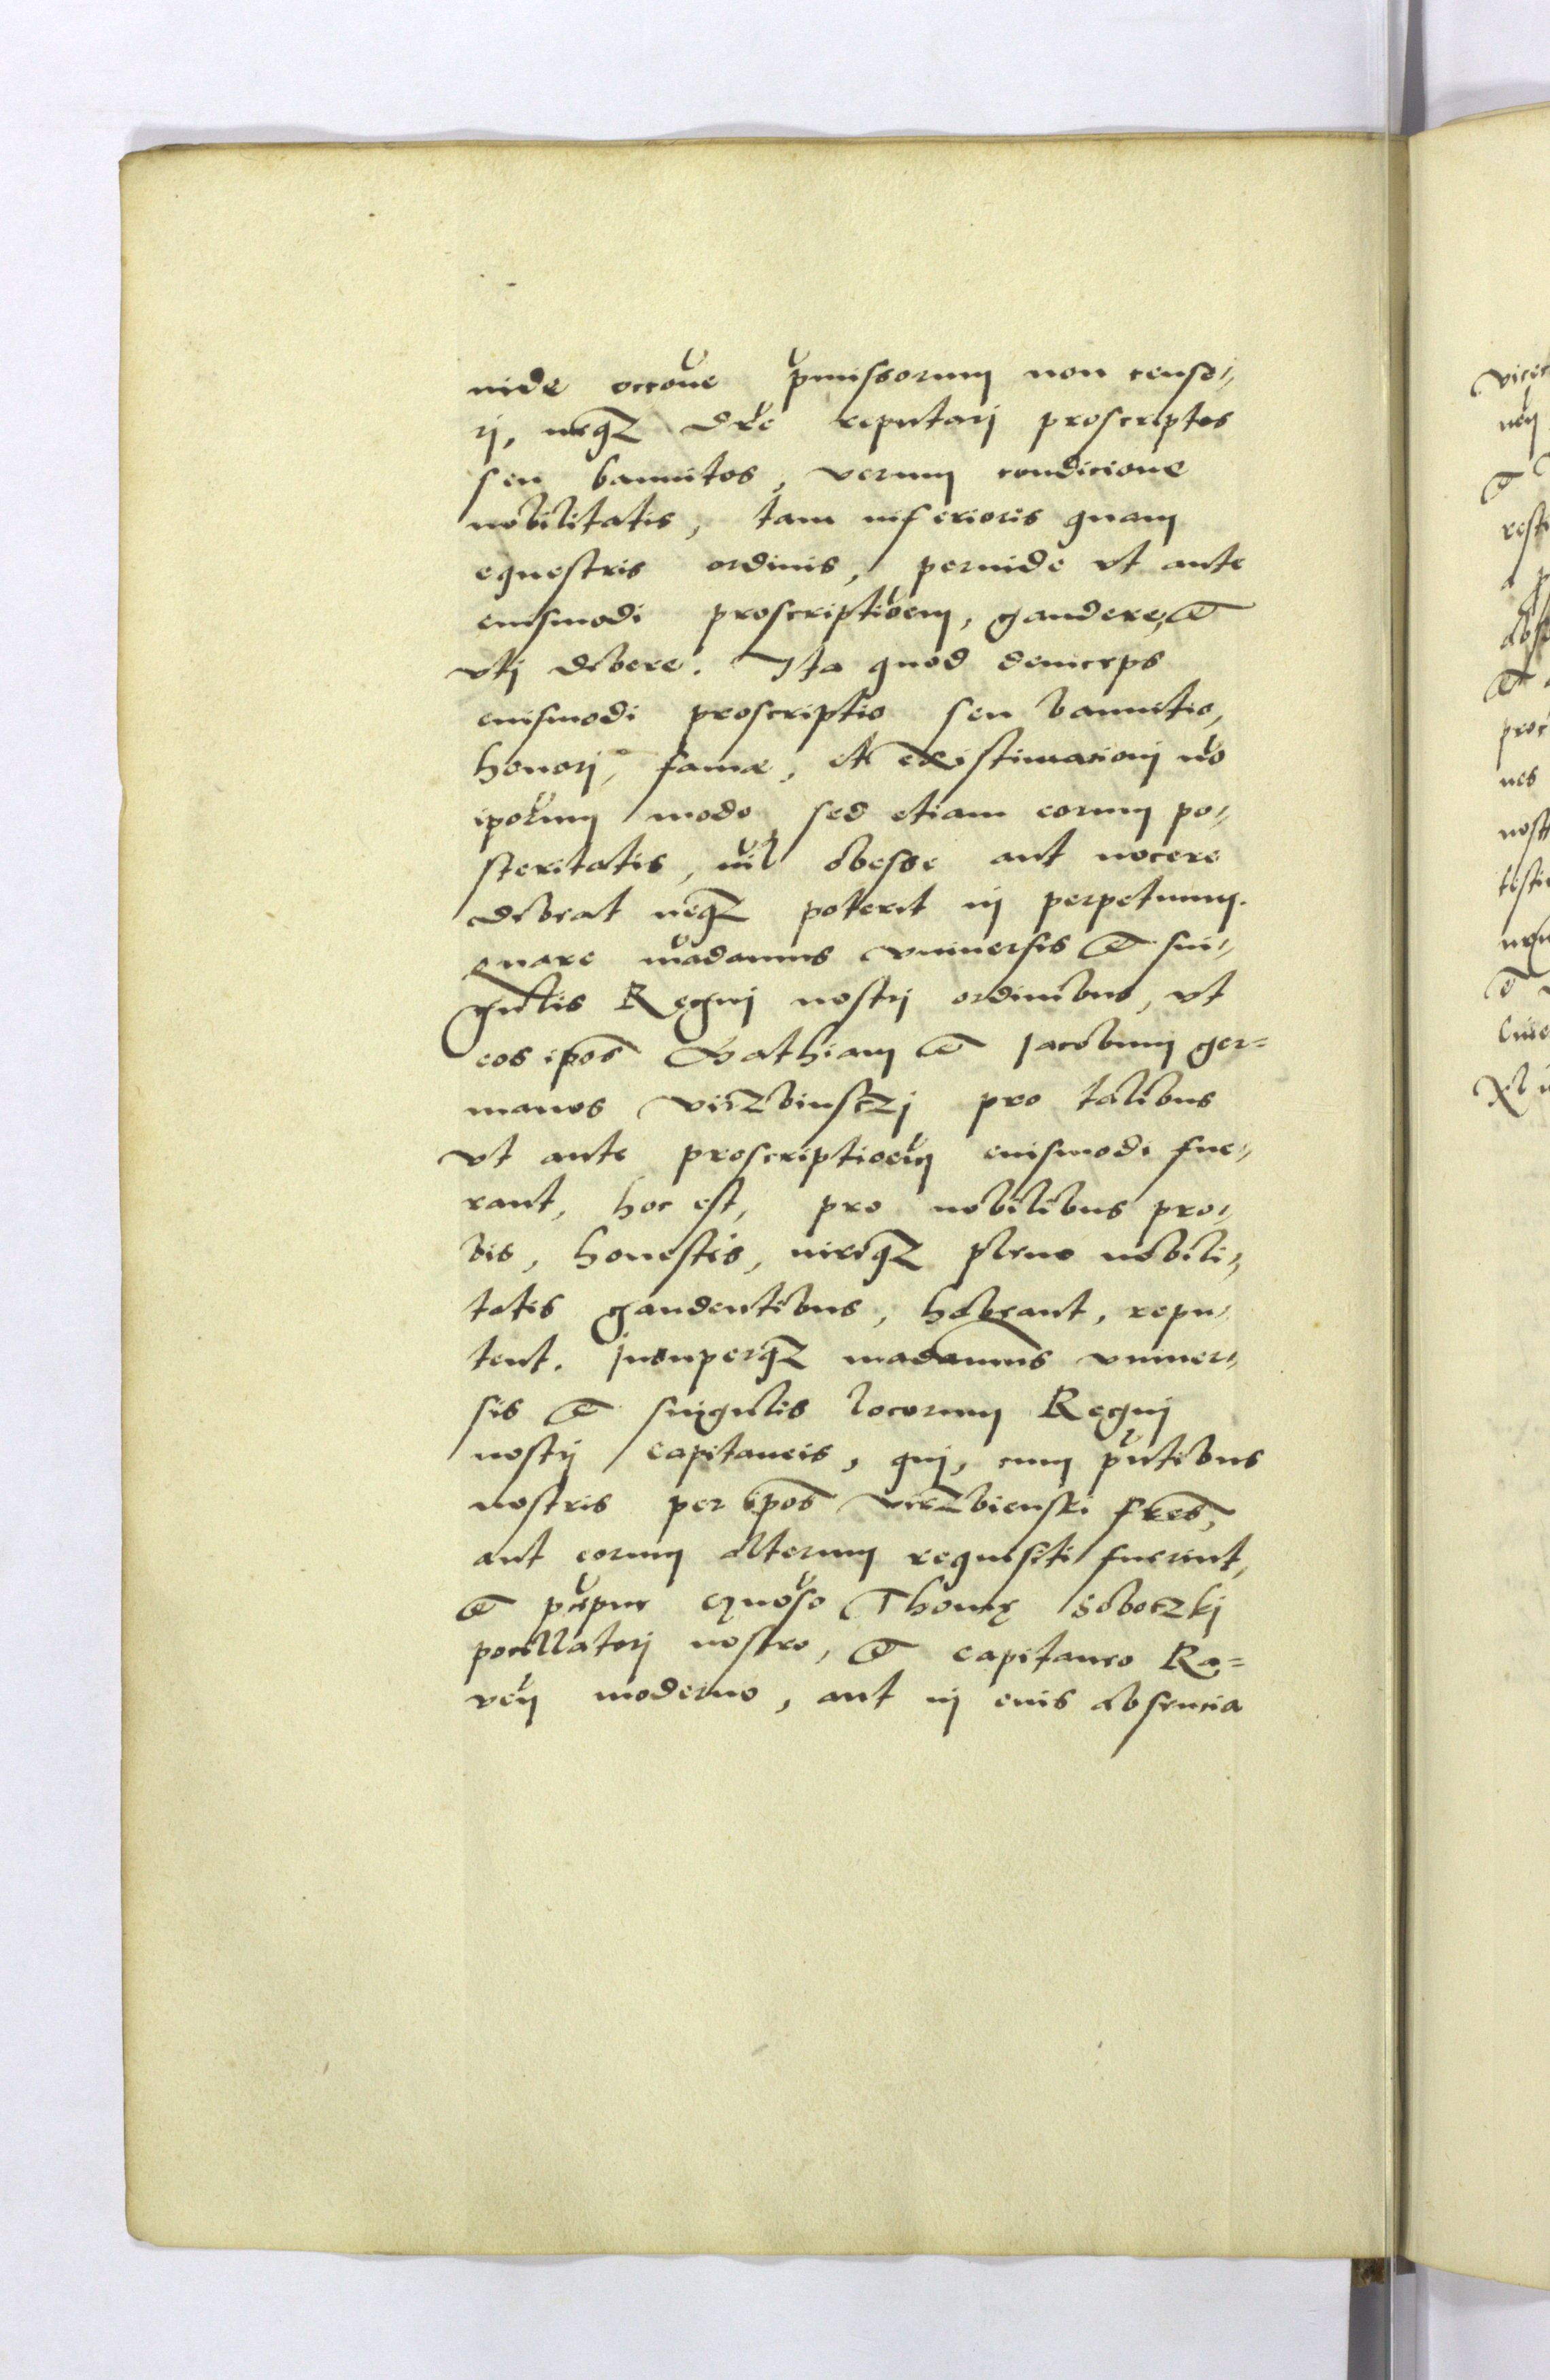 inde occone pmissorum non cense„
ri, neqz dre reputari proscriptos
seu bannitos, verum condicione
nobilitatis, tam inferioris quam
equestris ordinis, perinde vt ante
eiusmodi proscriptioem, gaudere, et
vti debere. Ita quod deinceps
eiusmodi proscriptio seu bannitio,
honori, famæ, et existimacioni no
ipsorum modo sed etiam eorum po„
steritatis, nil obesse aut nocere
debeat neqz poterit in perpetuum.
Quare madamus vniuersis et sin„
gulis Regni nostri ordinibus, vt
eos ipos Mathiam et Jacobum ger=
manos Virzbinsczi pro talibus
vt ante proscriptioem eiusmodi fue„
rant, hoc est, pro nobilibus pro„
bis, honestis, iureqz pleno nobili„
tatis gaudentibus, habeant, repu„
tent. Insuperqz madamus vniuer„
sis et singulis locorum Regni
nostri capitaneis, qui, cum pntibus
nostris per ipos Virzbienski fres,
aut eorum alterum requisiti fuerint,
et pcipue gnoso Thomę Soboczki
pocillatori nostro, et capitaneo Ra=
ven moderno, aut in eius absencia